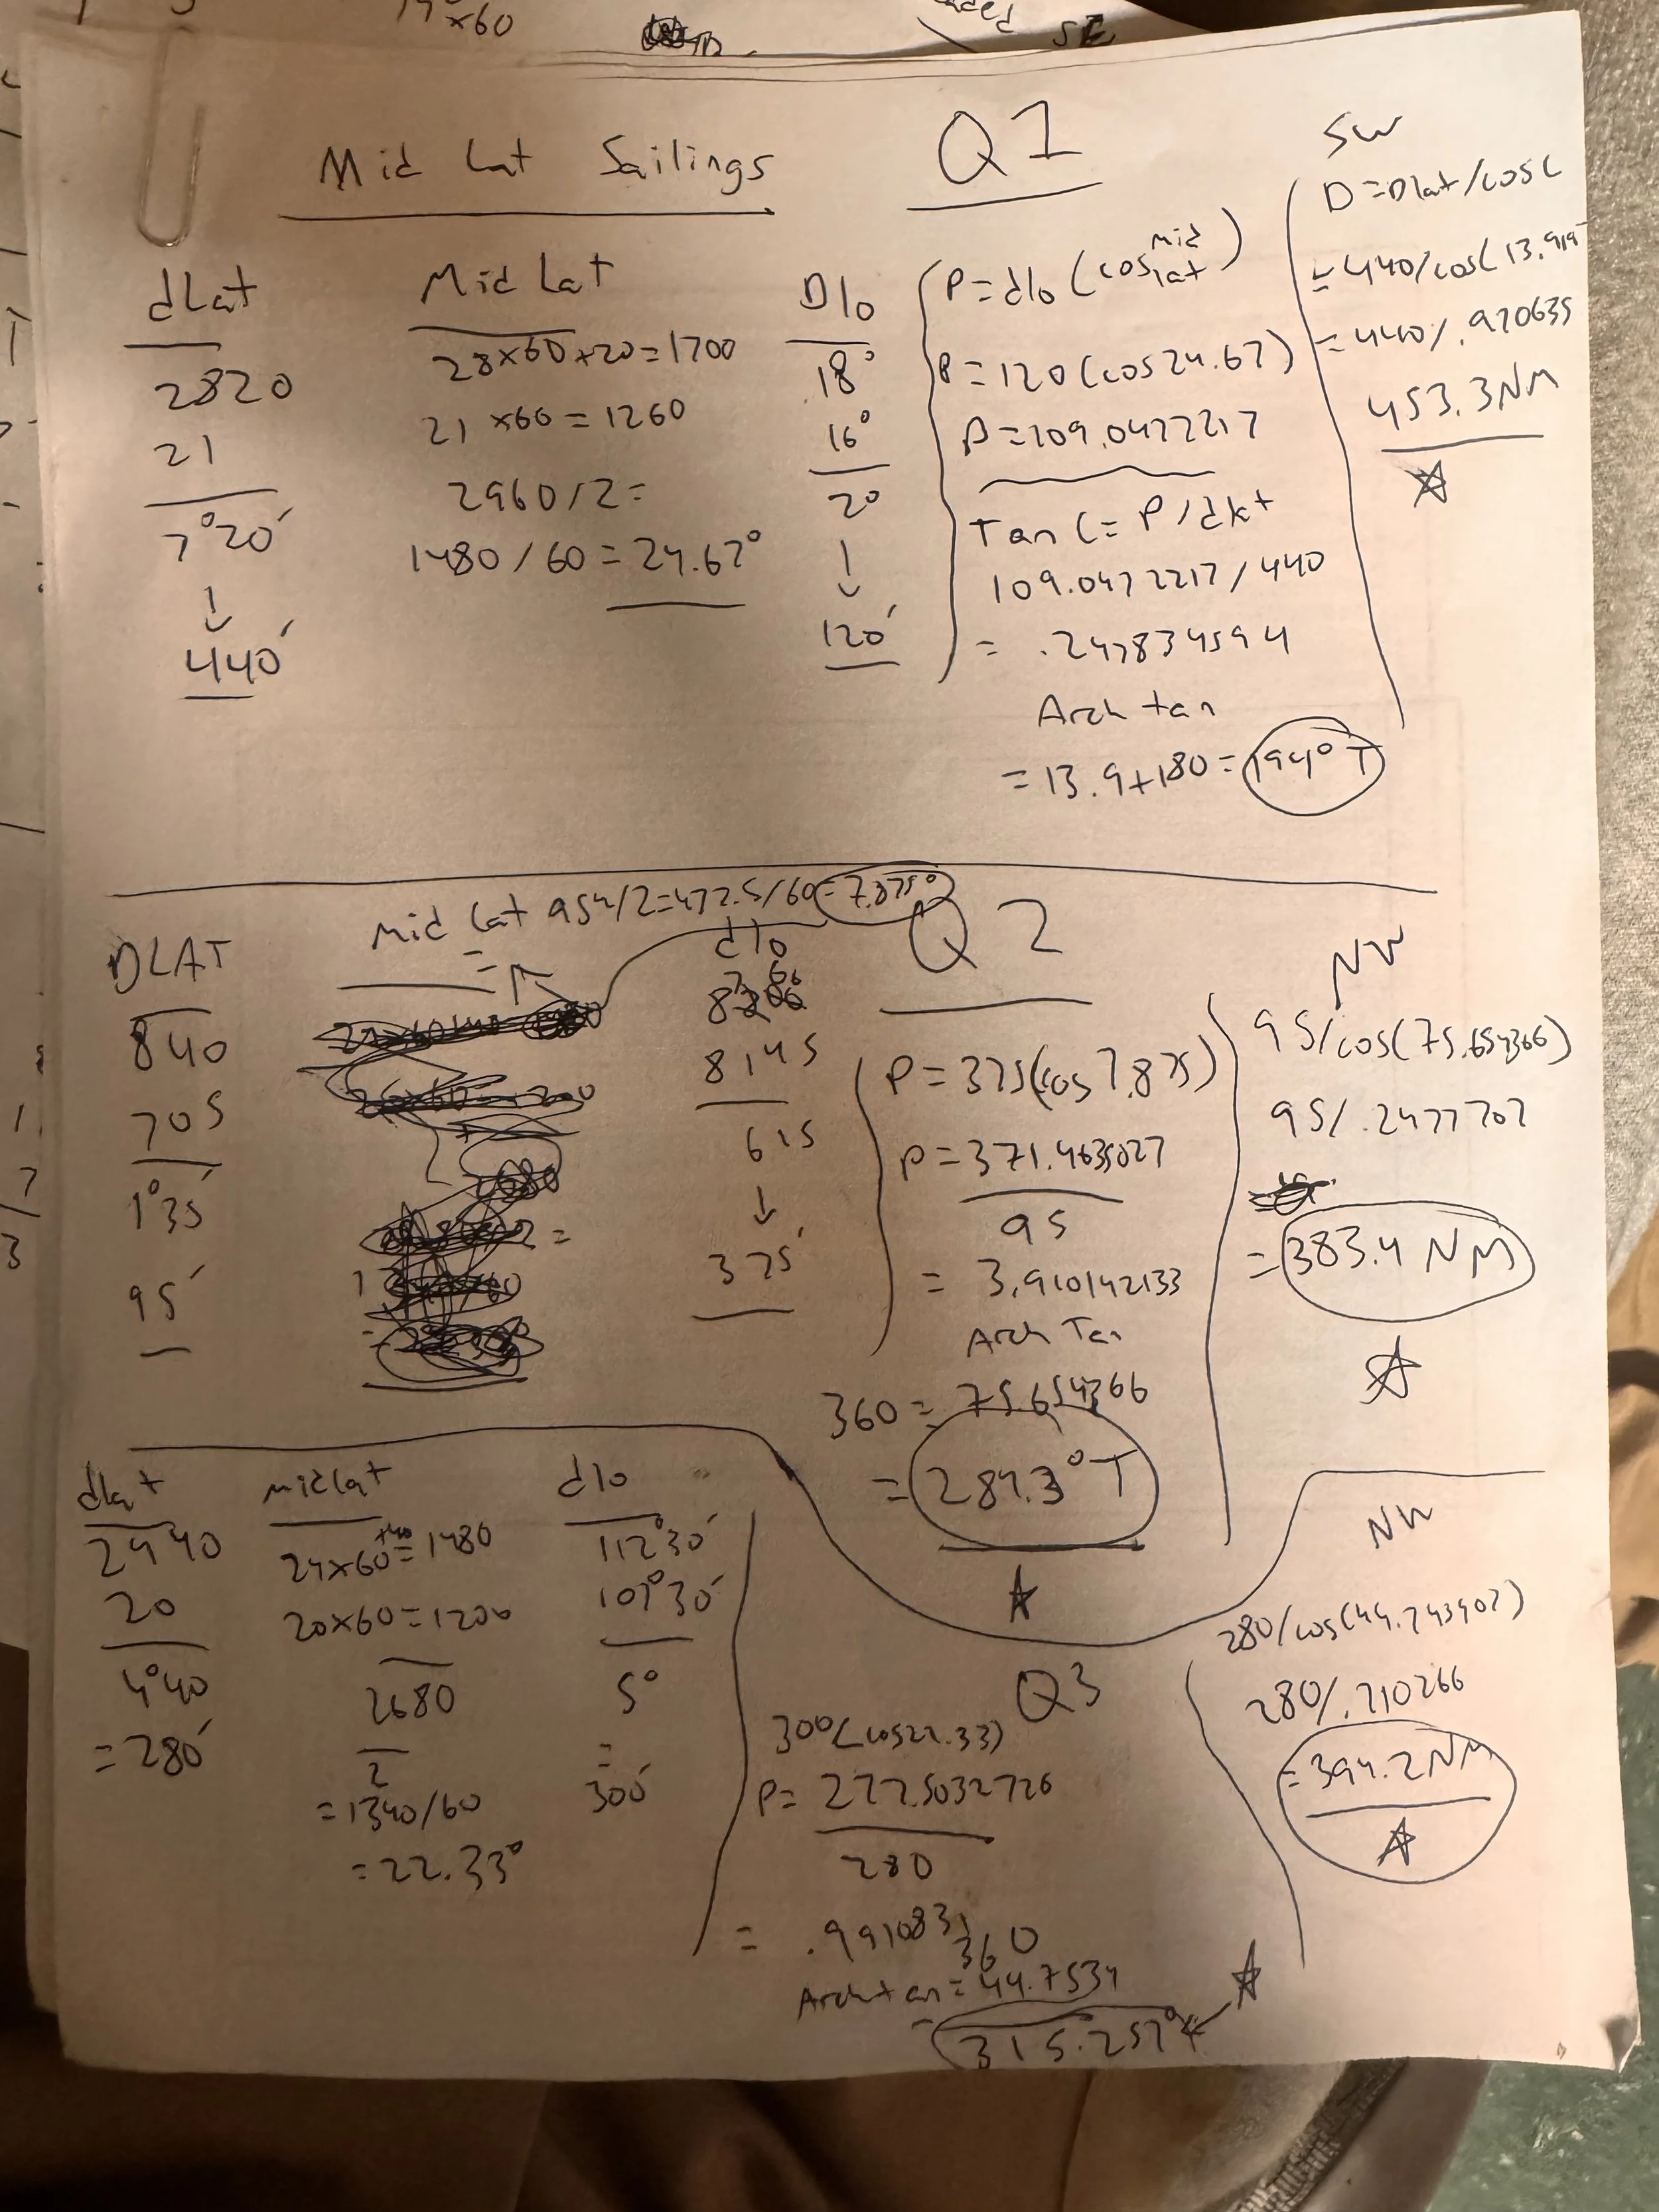 19°x60
SE
Mid Lat Sailings
Q1
dLat
2820
21
7°20'
↓
440'
Mid Lat
28x60+20=1700
21 x60=1260
2960/2=
1480/60=24.67°
Dlo
18°
16°
2°
↓
120'
P=dlo (cos mid lat)
P=120(cos24.67)
P=109.0472217
Tan C=P/dlat
109.0472217/440
= .247834594
Arch tan
=13.9+180=194°T
SW
D=Dlat/cosC
=440/cos(13.919
=440/.970635
453.3NM
Q2
DLAT
840
705
1°35'
95'
Mid Lat 954/2=472.5/60=7.875°
=
dlo
8145
615
↓
375'
P=375(cos7.875)
P=371.4635027
95
= 3.910142133
Arch Tan
360= 75.654366
= 284.3°T
NW
95/cos(75.654366)
95/.2477702
=383.4 NM
Q3
dlat
2440
20
4°40
=280'
midlat
24x60+40=1480
20x60=1200
2680
2
=1340/60
=22.33°
dlo
112°30'
107°30'
5°
=
300'
300(cos22.33)
P= 277.5032726
280
= .991083
360
Archtan=44.7534
=315.257°
NW
280/cos(44.743407)
280/.710266
=394.2NM